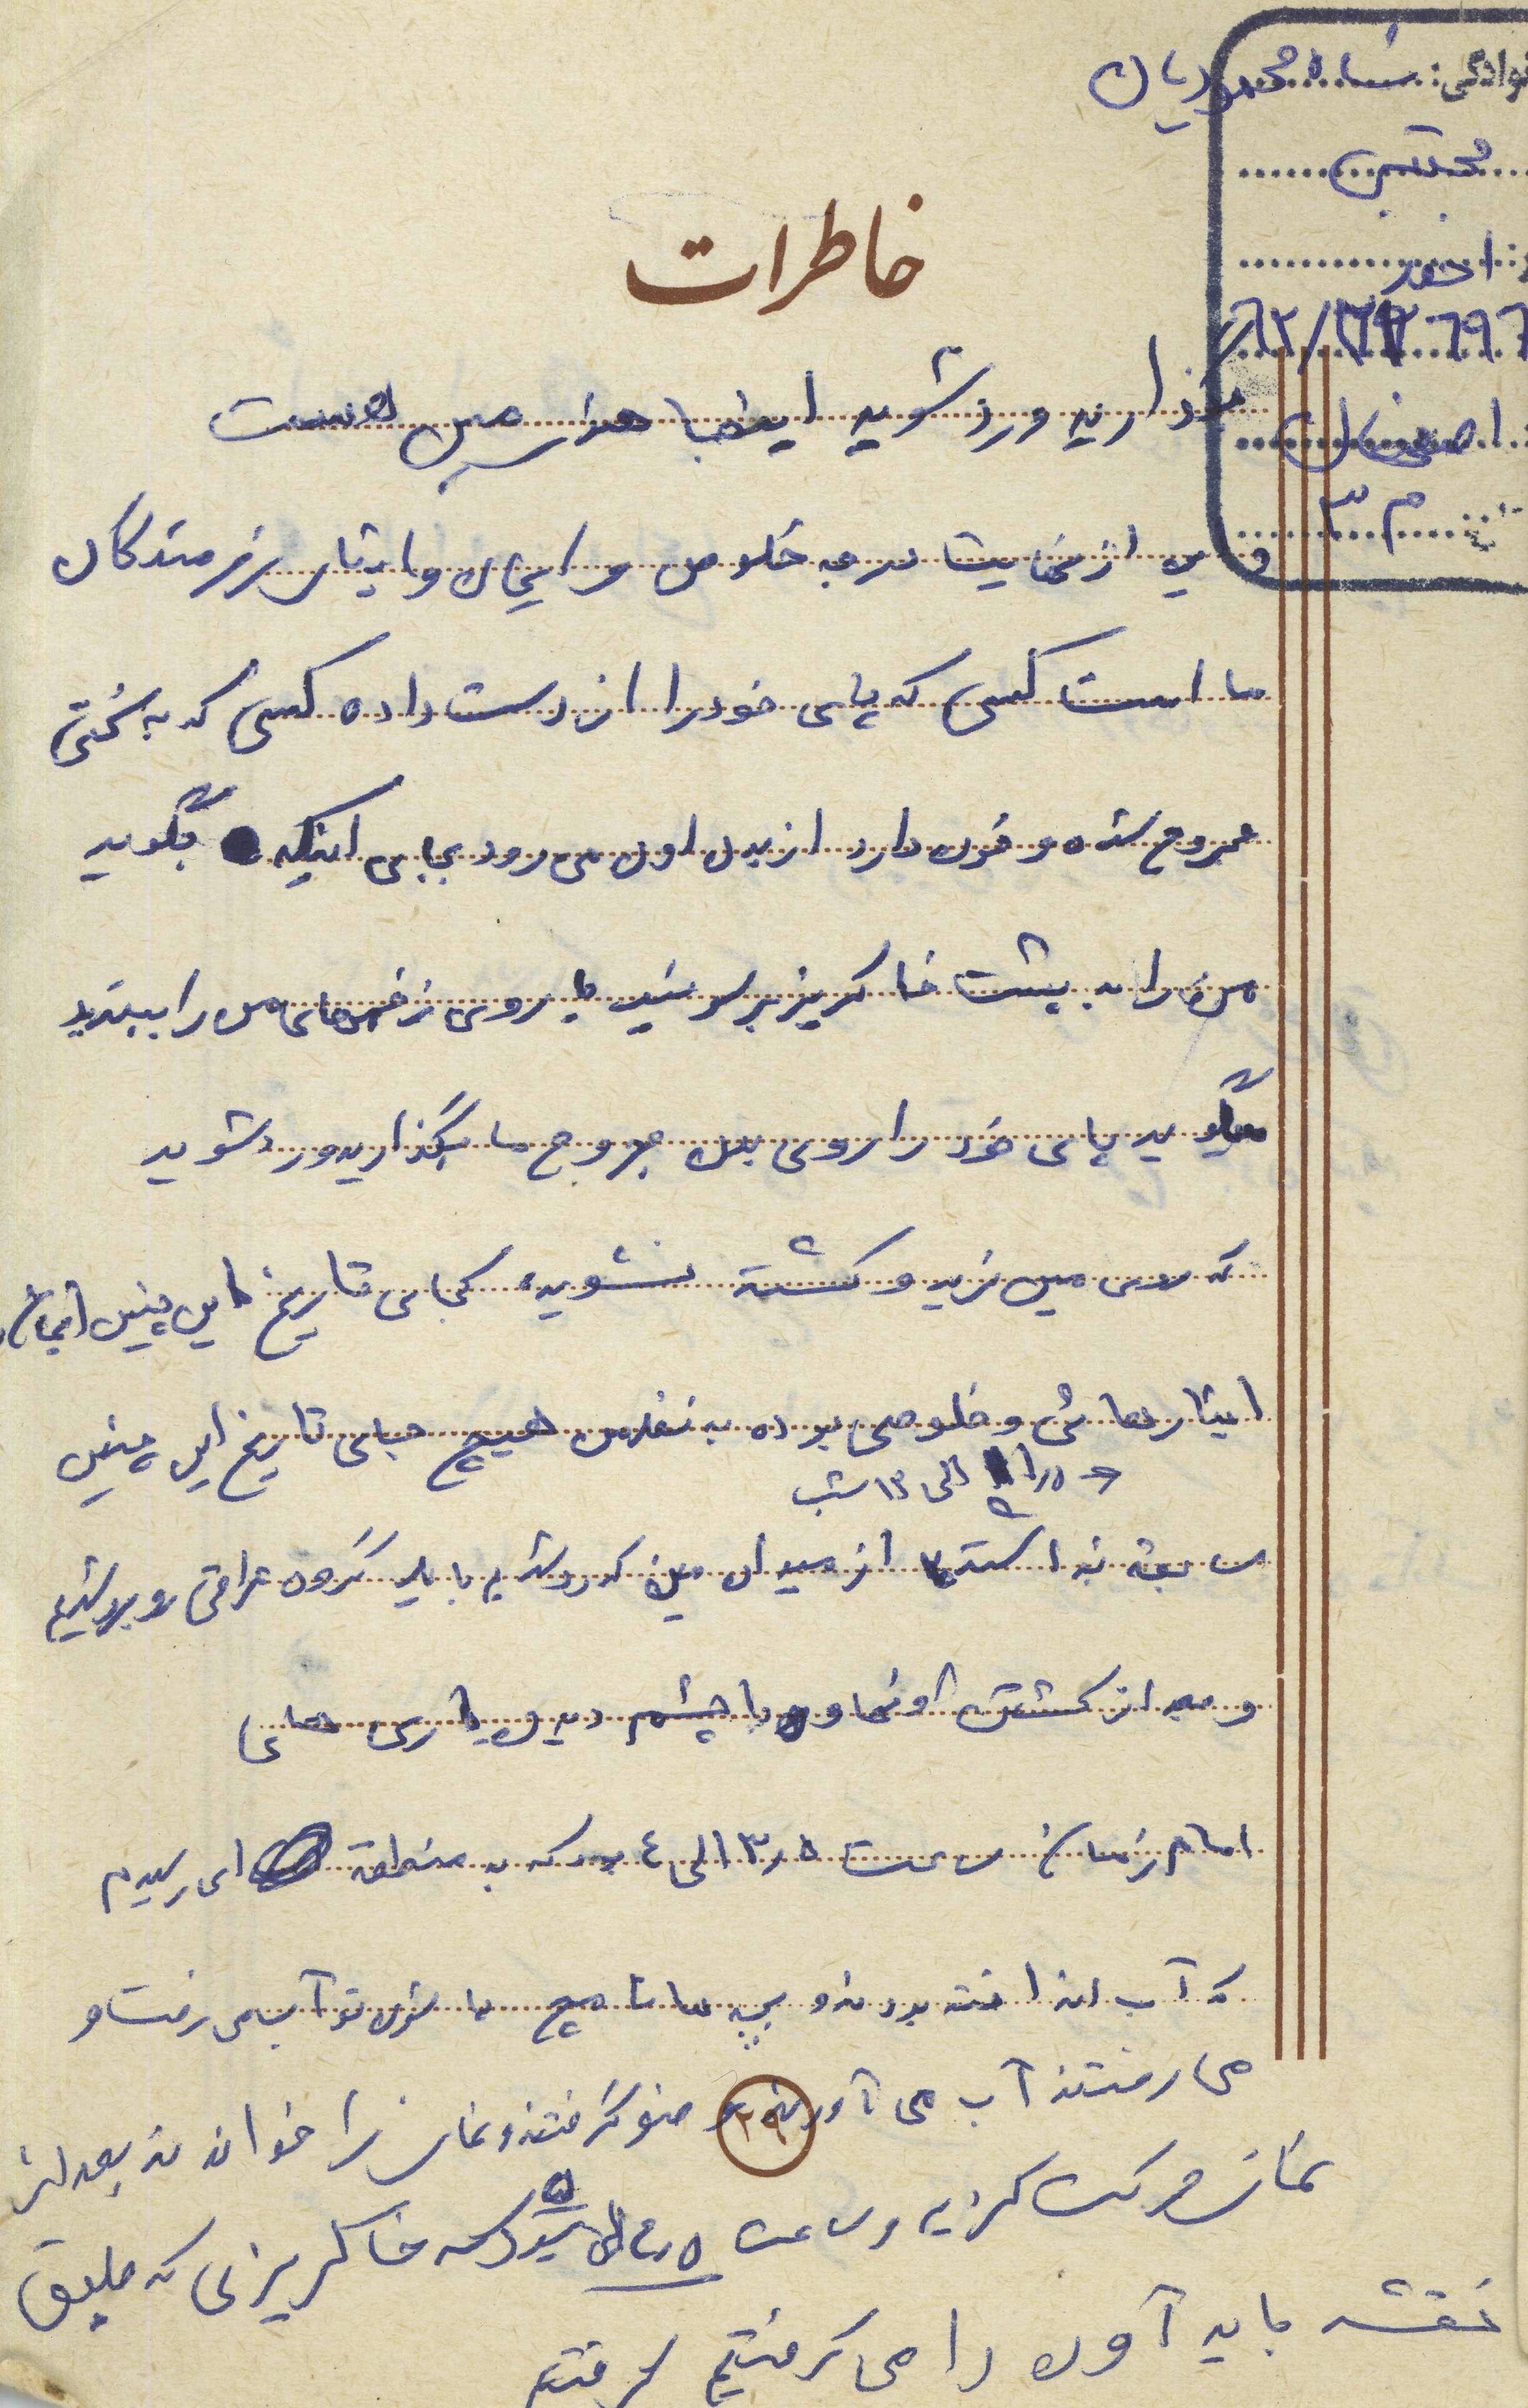 نوادگی: شاه محمودیان
مجتبی
احمد
۶۲/
اصفهان
م ۳
خاطرات
بگذارید و رد شوید اینجا مین هست
و این از نهایت درجه خلوص و ایمان و ایثار رزمندگان
ما است کسی که پای خود را از دست داده کسی که به سختی
مجروح شده و خون دارد از بدن اون می رود بجای اینکه بگوید
من را به پشت خاکریز برسونید یا روی زخم‌های من را ببندید
میگوید پای خود را روی بدن مجروح ما بگذارید و رد شوید
که روی مین نرید و کشته نشوید، کجای تاریخ این چنین ایمان،
ایثارهائی و خلوصی بوده به نظر من هیچ جای تاریخ این چنین
الی ۱۳ شب
سابقه نداشته از میدان مین که رد شدیم با یک گروه عراقی روبرو شدیم
و بعد از کشتن اونها و با چشم دیدن یاری های
امام زمان ساعت ۳٫۵ الی ٤ بود که به منطقه ای رسیدم
که آب انداخته بودند و بچه ها تا مچ پاشون تو آب می رفت و
می رفتند آب می آوردند و وضو گرفتند و نماز را خواندند بعد از
۲۹
نماز حرکت کردیم و ساعت خاکریزی که طبق
نقشه باید آون را می گرفتیم گرفتیم